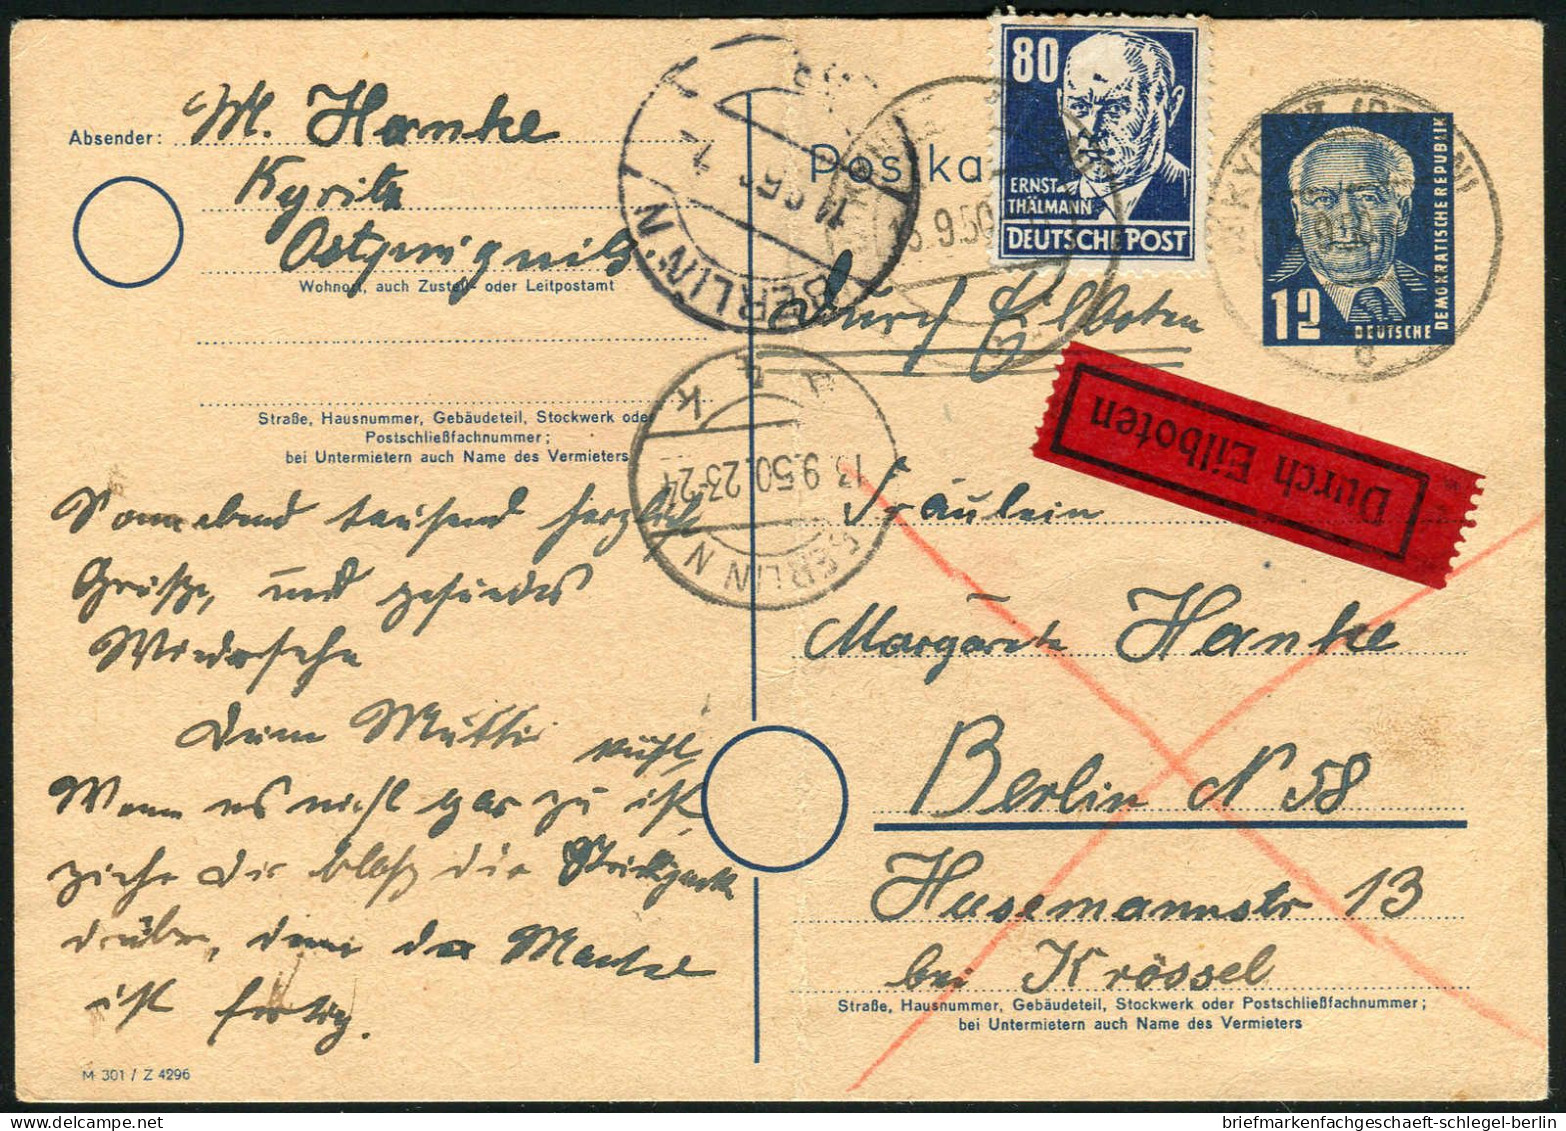 Absender: M. Hanke
Kyritz
Ostprignitz
Wohnort, auch Zustell- oder Leitpostamt
Straße, Hausnummer, Gebäudeteil, Stockwerk oder
Postschließfachnummer;
bei Untermietern auch Name des Vermieters
Sonnabend tausend herzliche
Grüße, und gesundes
Wiedersehn
Deine Mutti
kühl
Wenn es nicht gar zu ist,
ziehe dir bloß die Strickjacke
drüber, denn der Mantel
ist fertig.
M 301 / Z 4296
Postka
80
ERNST
THÄLMANN
DEUTSCHE POST
12
DEUTSCHE
DEMOKRATISCHE REPUBLIK
BERLIN N
13.9.50.23-24
BERLIN N
9.50
durch Eilboten
Durch Eilboten
Fräulein
Margarete Hanke
Berlin N 58
Husemannstr 13
bei Krössel
Straße, Hausnummer, Gebäudeteil, Stockwerk oder Postschließfachnummer;
bei Untermietern auch Name des Vermieters
briefmarkenfachgeschaeft-schlegel-berlin